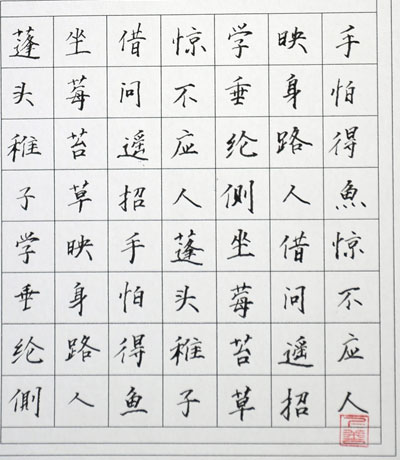 蓬头稚子学垂纶側
坐莓苔草映身路人
借问遥招手怕得鱼
惊不应人蓬头稚子
学垂纶側坐莓苔草
映身路人借问遥招
手怕得魚惊不应人